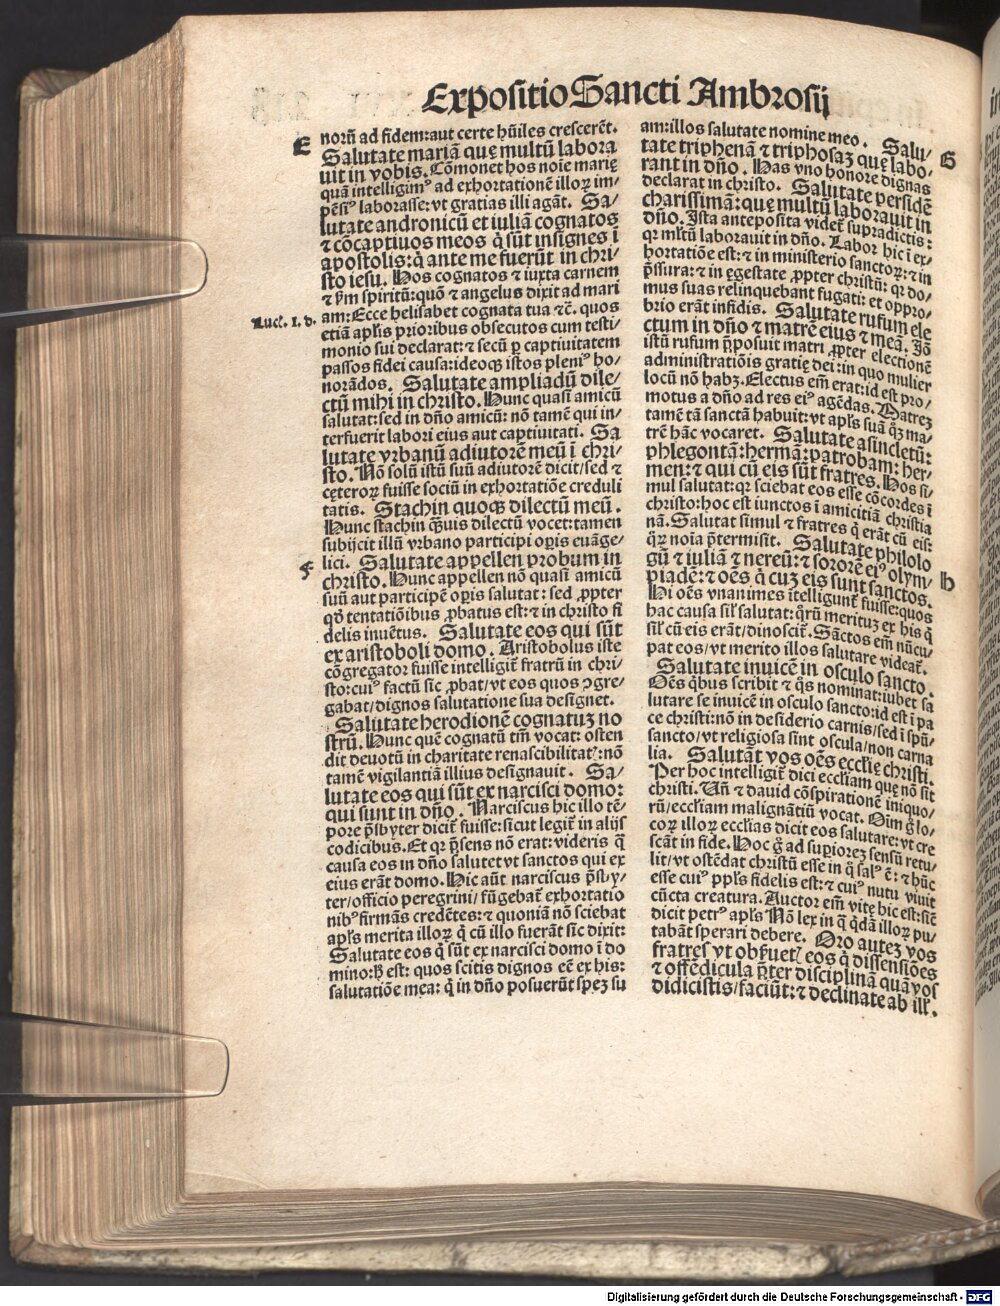 Expositio Sancti Ambrosij
E
norū ad fidem:aut certe hūiles crescerēt.
Salutate mariā quę multū labora
uit in vobis. Cōmonet hos noīe marię
quā intelligimꝰ ad exhortationē illoꝝ im/
pēsiꝰ laborasse:vt gratias illi agāt. Sa/
lutate andronicū et iuliā cognatos
⁊ cōcaptiuos meos q̇ sūt insignes ī
apostolis:q̇ ante me fuerūt in chri/
sto iesu. Hos cognatos ⁊ iuxta carnem
⁊ ẜm spiritū:quō ⁊ angelus dixit ad mari
Luce. 1. d.
am:Ecce helisabet cognata tua ⁊c̄. quos
etiā apl̓is prioribus obsecutos cum testi/
monio sui declarat:⁊ secū ꝑ captiuitatem
passos fidei causa:ideoqꝫ istos pleniꝰ ho/
norādos. Salutate ampliadū dile/
ctū mihi in christo. Hunc quasi amicū
salutat:sed in dn̄o amicū: nō tamē qui in/
terfuerit labori eius aut captiuitati. Sa
lutate vrbanū adiutorē meū ī chri/
sto. Nō solū istū suū adiutorē dicit/sed ⁊
cęteroꝝ fuisse sociū in exhortatiōe creduli
tatis. Stachin quoqꝫ dilectū meū.
Hunc stachin q̄uis dilectū vocet:tamen
subijcit illū vrbano participi opis euāge/
F
lici. Salutate appellen probum in
christo. Hunc appellen nō quasi amicū
suū aut participē opis salutat: sed ꝓpter
qd̓ tentatiōibus ꝓbatus est:⁊ in christo fi
delis inuētus. Salutate eos qui sūt
ex aristoboli domo. Aristobolus iste
cōgregator fuisse intelligit̄ fratrū in chri/
sto:cuiꝰ factū sic ꝓbat/vt eos quos ꝯgre/
gabat/dignos salutatione sua designet.
Salutate herodionē cognatuꝫ no
strū. Hunc quē cognatū tm̄ vocat: osten
dit deuotū in charitate renascibilitatꝭ:nō
tamē vigilantiā illius designauit. Sa/
lutate eos qui sūt ex narcisci domo:
qui sunt in dn̄o. Narciscus hic illo tē/
pore p̄sbyter dicit̄ fuisse:sicut legit̄ in alijs
codicibus. Et qꝛ p̄sens nō erat:videris q̄
causa eos in dn̄o salutet vt sanctos qui ex
eius erāt domo. Hic aūt narciscus p̄sby/
ter/officio peregrini/fūgebat̄ exhortatio
nibꝰ firmās credētes:⁊ quoniā nō sciebat
apl̓s merita illoꝝ q̇ cū illo fuerāt sic dixit:
Salutate eos q̇ sūt ex narcisci domo ī do
mino:hͦ est: quos scitis dignos eē ex his:
salutatiōe mea: q̇ in dn̄o posuerūt speꝫ su
am:illos salutate nomine meo. Salu/
G
tate triphenā ⁊ triphosaꝫ quę labo/
rant in dn̄o. Has vno honore dignas
declarat in christo. Salutate persidē
charissimā:quę multū laborauit in
dn̄o. Ista anteposita videt̄ supradictis:
qꝛ ml̓tū laborauit in dn̄o. Labor hic ī ex/
hortatiōe est:⁊ in ministerio sanctoꝝ:⁊ in
p̄ssura:⁊ in ęgestate ꝓpter christū: qꝛ do/
mus suas relinquebant fugati: et oppro/
brio erāt infidis. Salutate rufum ele
ctum in dn̄o ⁊ matrē eius ⁊ meā. Iō
istū rufum p̄posuit matri ꝓpter electionē
administratiōis gratię dei:in quo mulier
locū nō habꝫ. Electus em̄ erat:id est pro/
motus a dn̄o ad res eiꝰ agēdas. Matreꝫ
tamē tā sanctā habuit:vt apl̓s suā q̄ꝫ ma/
trē hāc vocaret. Salutate asincletū:
phlegontā:hermā:patrobam: her/
men:⁊ qui cū eis sūt fratres. Hos si/
mul salutat:qꝛ sciebat eos esse cōcordes ī
christo:hoc est iunctos ī amicitiā christia
nā. Salutat simul ⁊ fratres q̇ erāt cū eis:
q̄ꝝ noīa p̄termisit. Salutate philolo
gū ⁊ iuliā ⁊ nereū:⁊ sororē eiꝰ olym/
H
piadē:⁊ oēs q̇ cuꝫ eis sunt sanctos.
Hi oēs vnanimes ītelligunt̄ fuisse:quos
hac causa sil̓ salutat:q̄rū merituꝫ ex his q̇
sil̓ cū eis erāt/dinoscit̄. Sāctos em̄ nūcu/
pat eos/vt merito illos salutare videat̄.
Salutate inuicē in osculo sancto.
Oēs q̇bus scribit ⁊ q̄s nominat:iubet sa
lutare se inuicē in osculo sancto:id est ī pa
ce christi:nō in desiderio carnis/sed ī spū/
sancto/vt religiosa sint oscula/non carna
lia. Salutāt vos oēs ecclīę christi.
Per hoc intelligit̄ dici eccl̓iam quę nō sit
christi. Vn̄ ⁊ dauid cōspirationē iniquo/
rū/eccl̓iam malignātiū vocat. Oīm g̊ lo/
coꝝ illoꝝ eccl̓ias dicit eos salutare:vt cre
scāt in fide. Hoc g̊ ad supioreꝫ sensū retu/
lit/vt ostēdat christū esse in q̊ salꝰ ē: ⁊ hūc
esse cuiꝰ ppl̓s fidelis est:⁊ cuiꝰ nutu viuit
cūcta creatura. Auctor em̄ vitę hic est:sic̄
dicit petrꝰ apl̓s Nō lex in q̊ q̇dā illoꝝ pu/
tabāt sperari debere. Oro auteꝫ vos
fratres vt obẜuetꝭ eos q̇ dissensiōes
⁊ offēdicula p̄ter disciplinā quā vos
didicistis/faciūt:⁊ declinate ab ill̓.
Digitalisierung gefördert durch die Deutsche Forschungsgemeinschaft - DFG